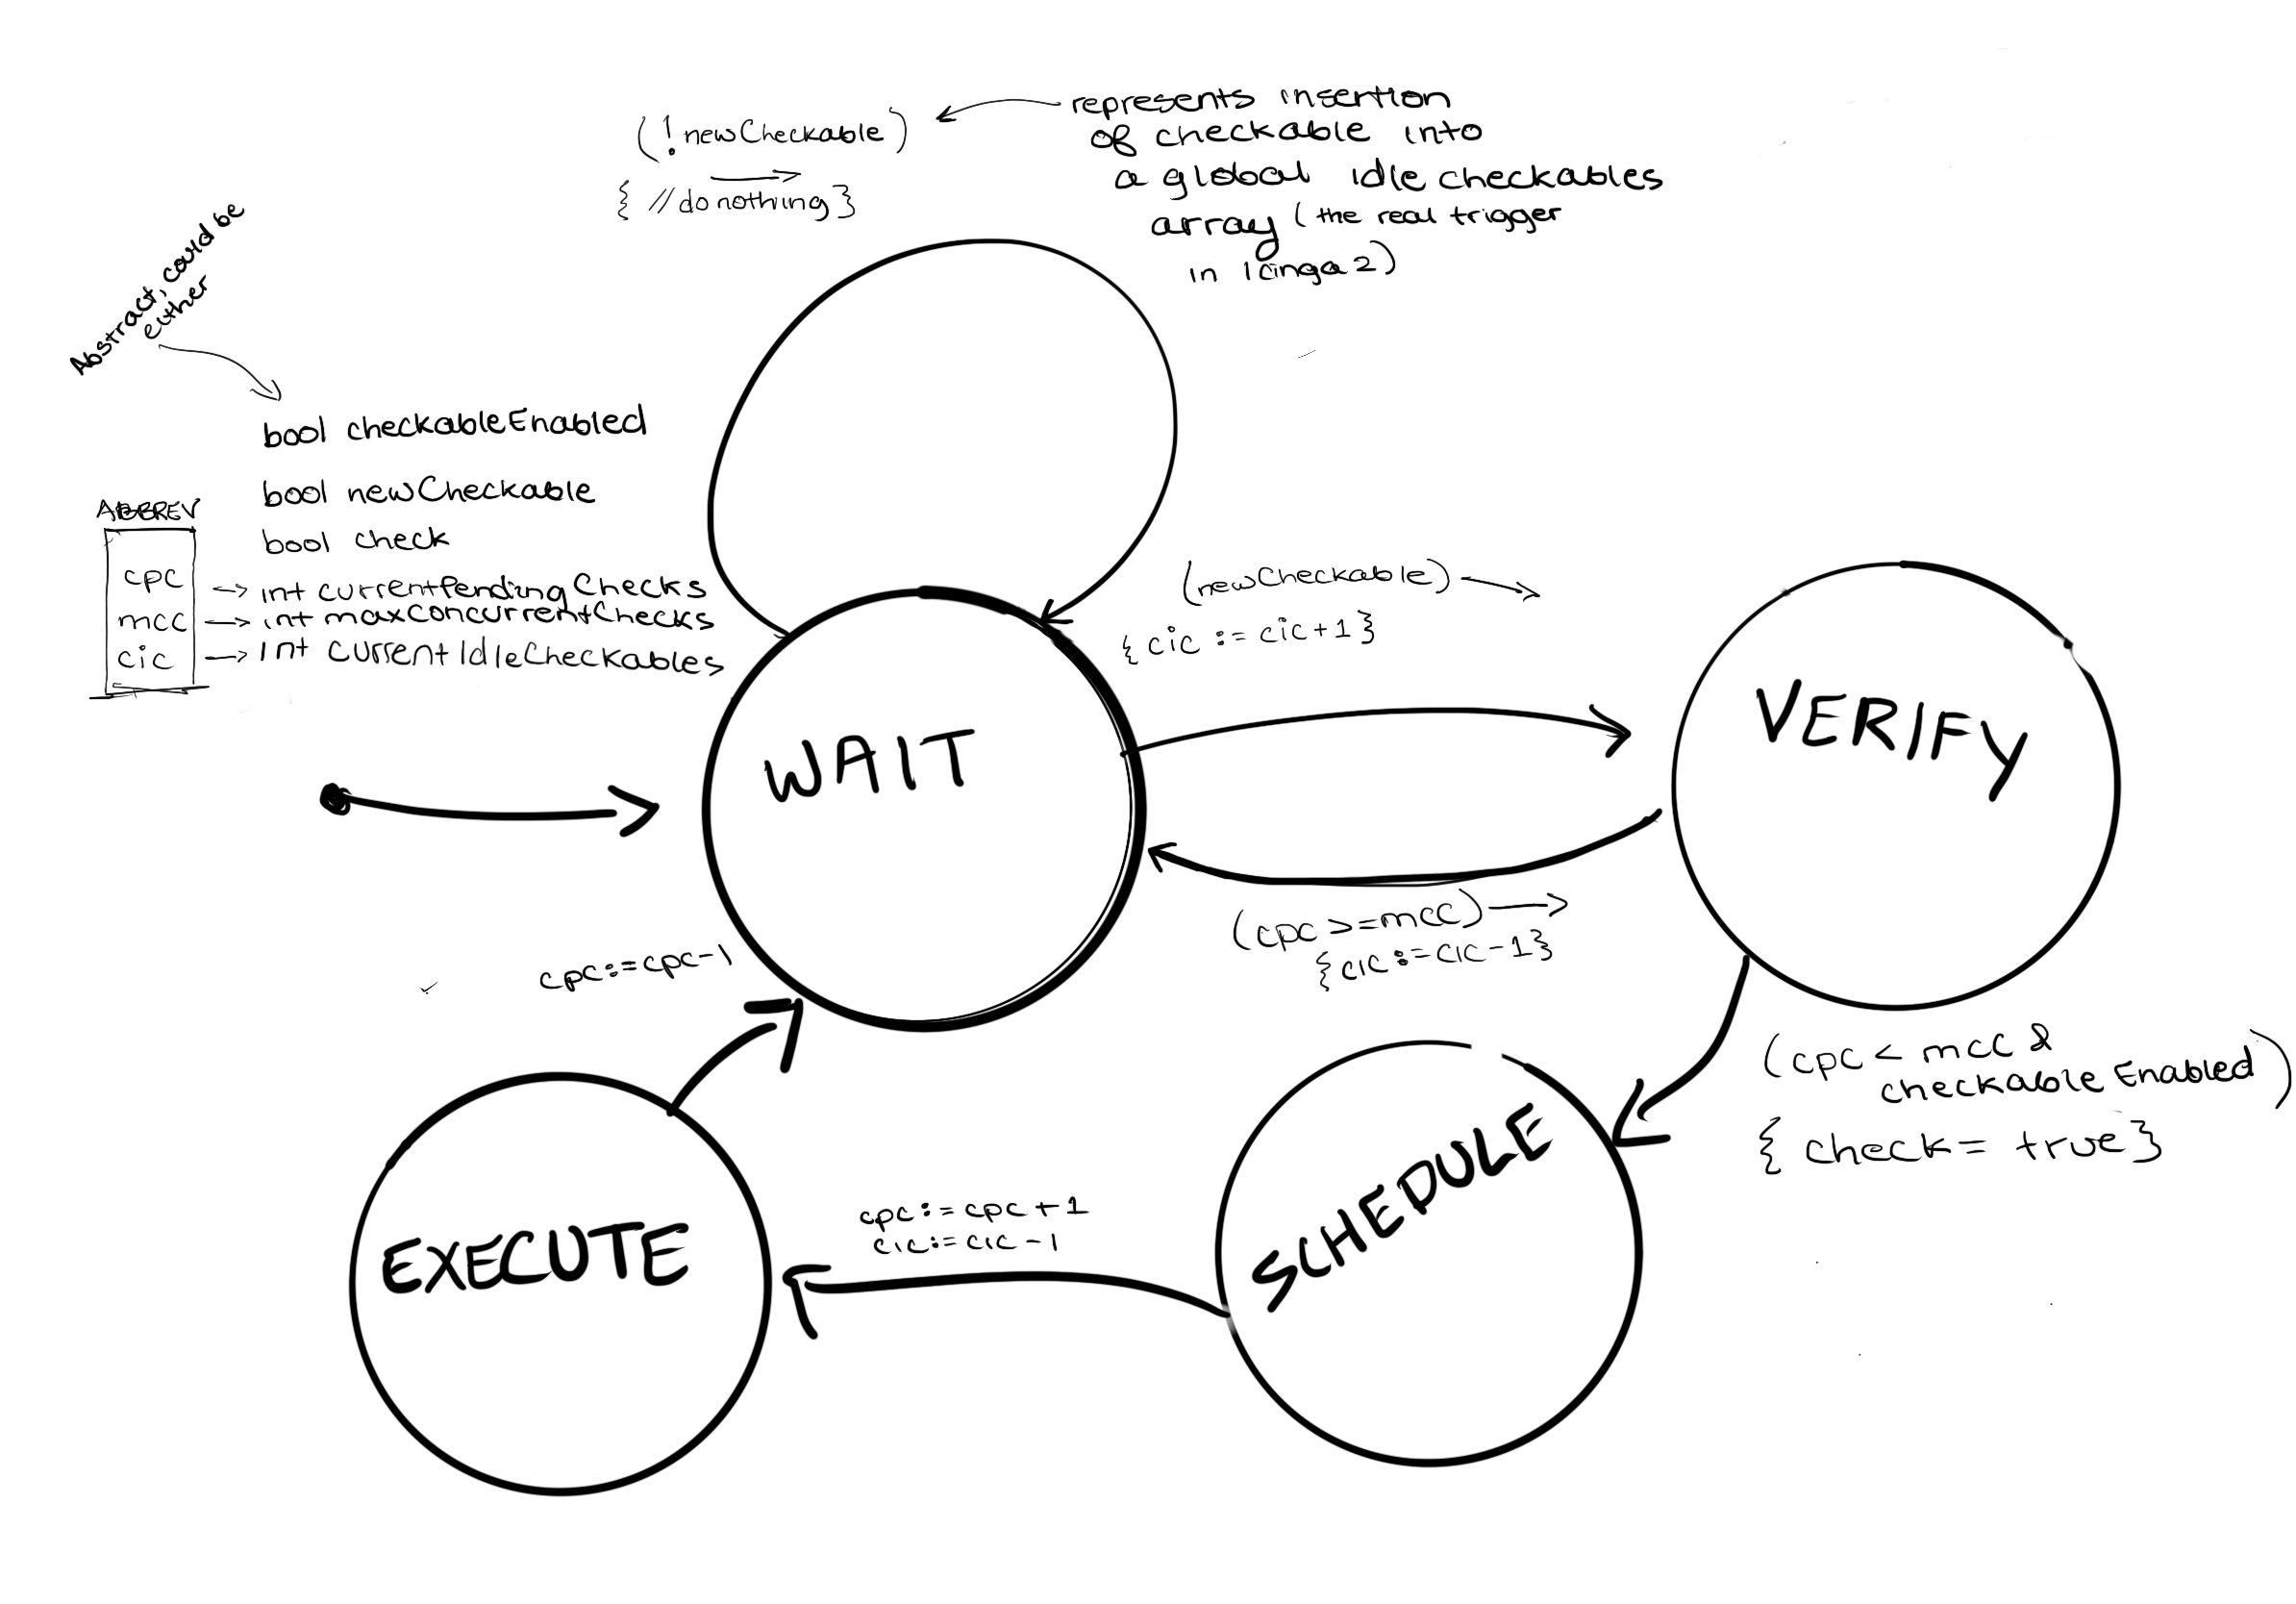 (!newCheckable)
{ //do nothing }
represents insertion
of checkable into
a global idle checkables
array (the real trigger
in Icinga2)
Abstract, could be
either
bool checkableEnabled
bool newCheckable
bool check
ABBREV
cpc → int currentPendingChecks
mcc → int maxConcurrentChecks
cic → int currentIdleCheckables
(newCheckable) →
{ cic := cic+1 }
WAIT
VERIFY
(cpc >= mcc) →
{ cic := cic-1 }
cpc:=cpc-1
(cpc < mcc &
checkableEnabled)
{ check = true }
SCHEDULE
cpc := cpc + 1
cic := cic - 1
EXECUTE